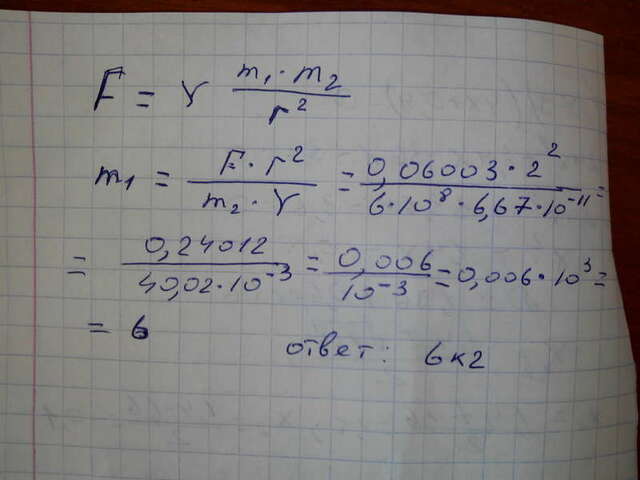 F = γ m₁·m₂ / r²
m₁ = F·r² / m₂·γ = 0,06003·2² / 6·10⁸·6,67·10⁻¹¹ =
= 0,24012 / 40,02·10⁻³ = 0,006 / 10⁻³ = 0,006·10³ =
= 6
ответ: 6 кг